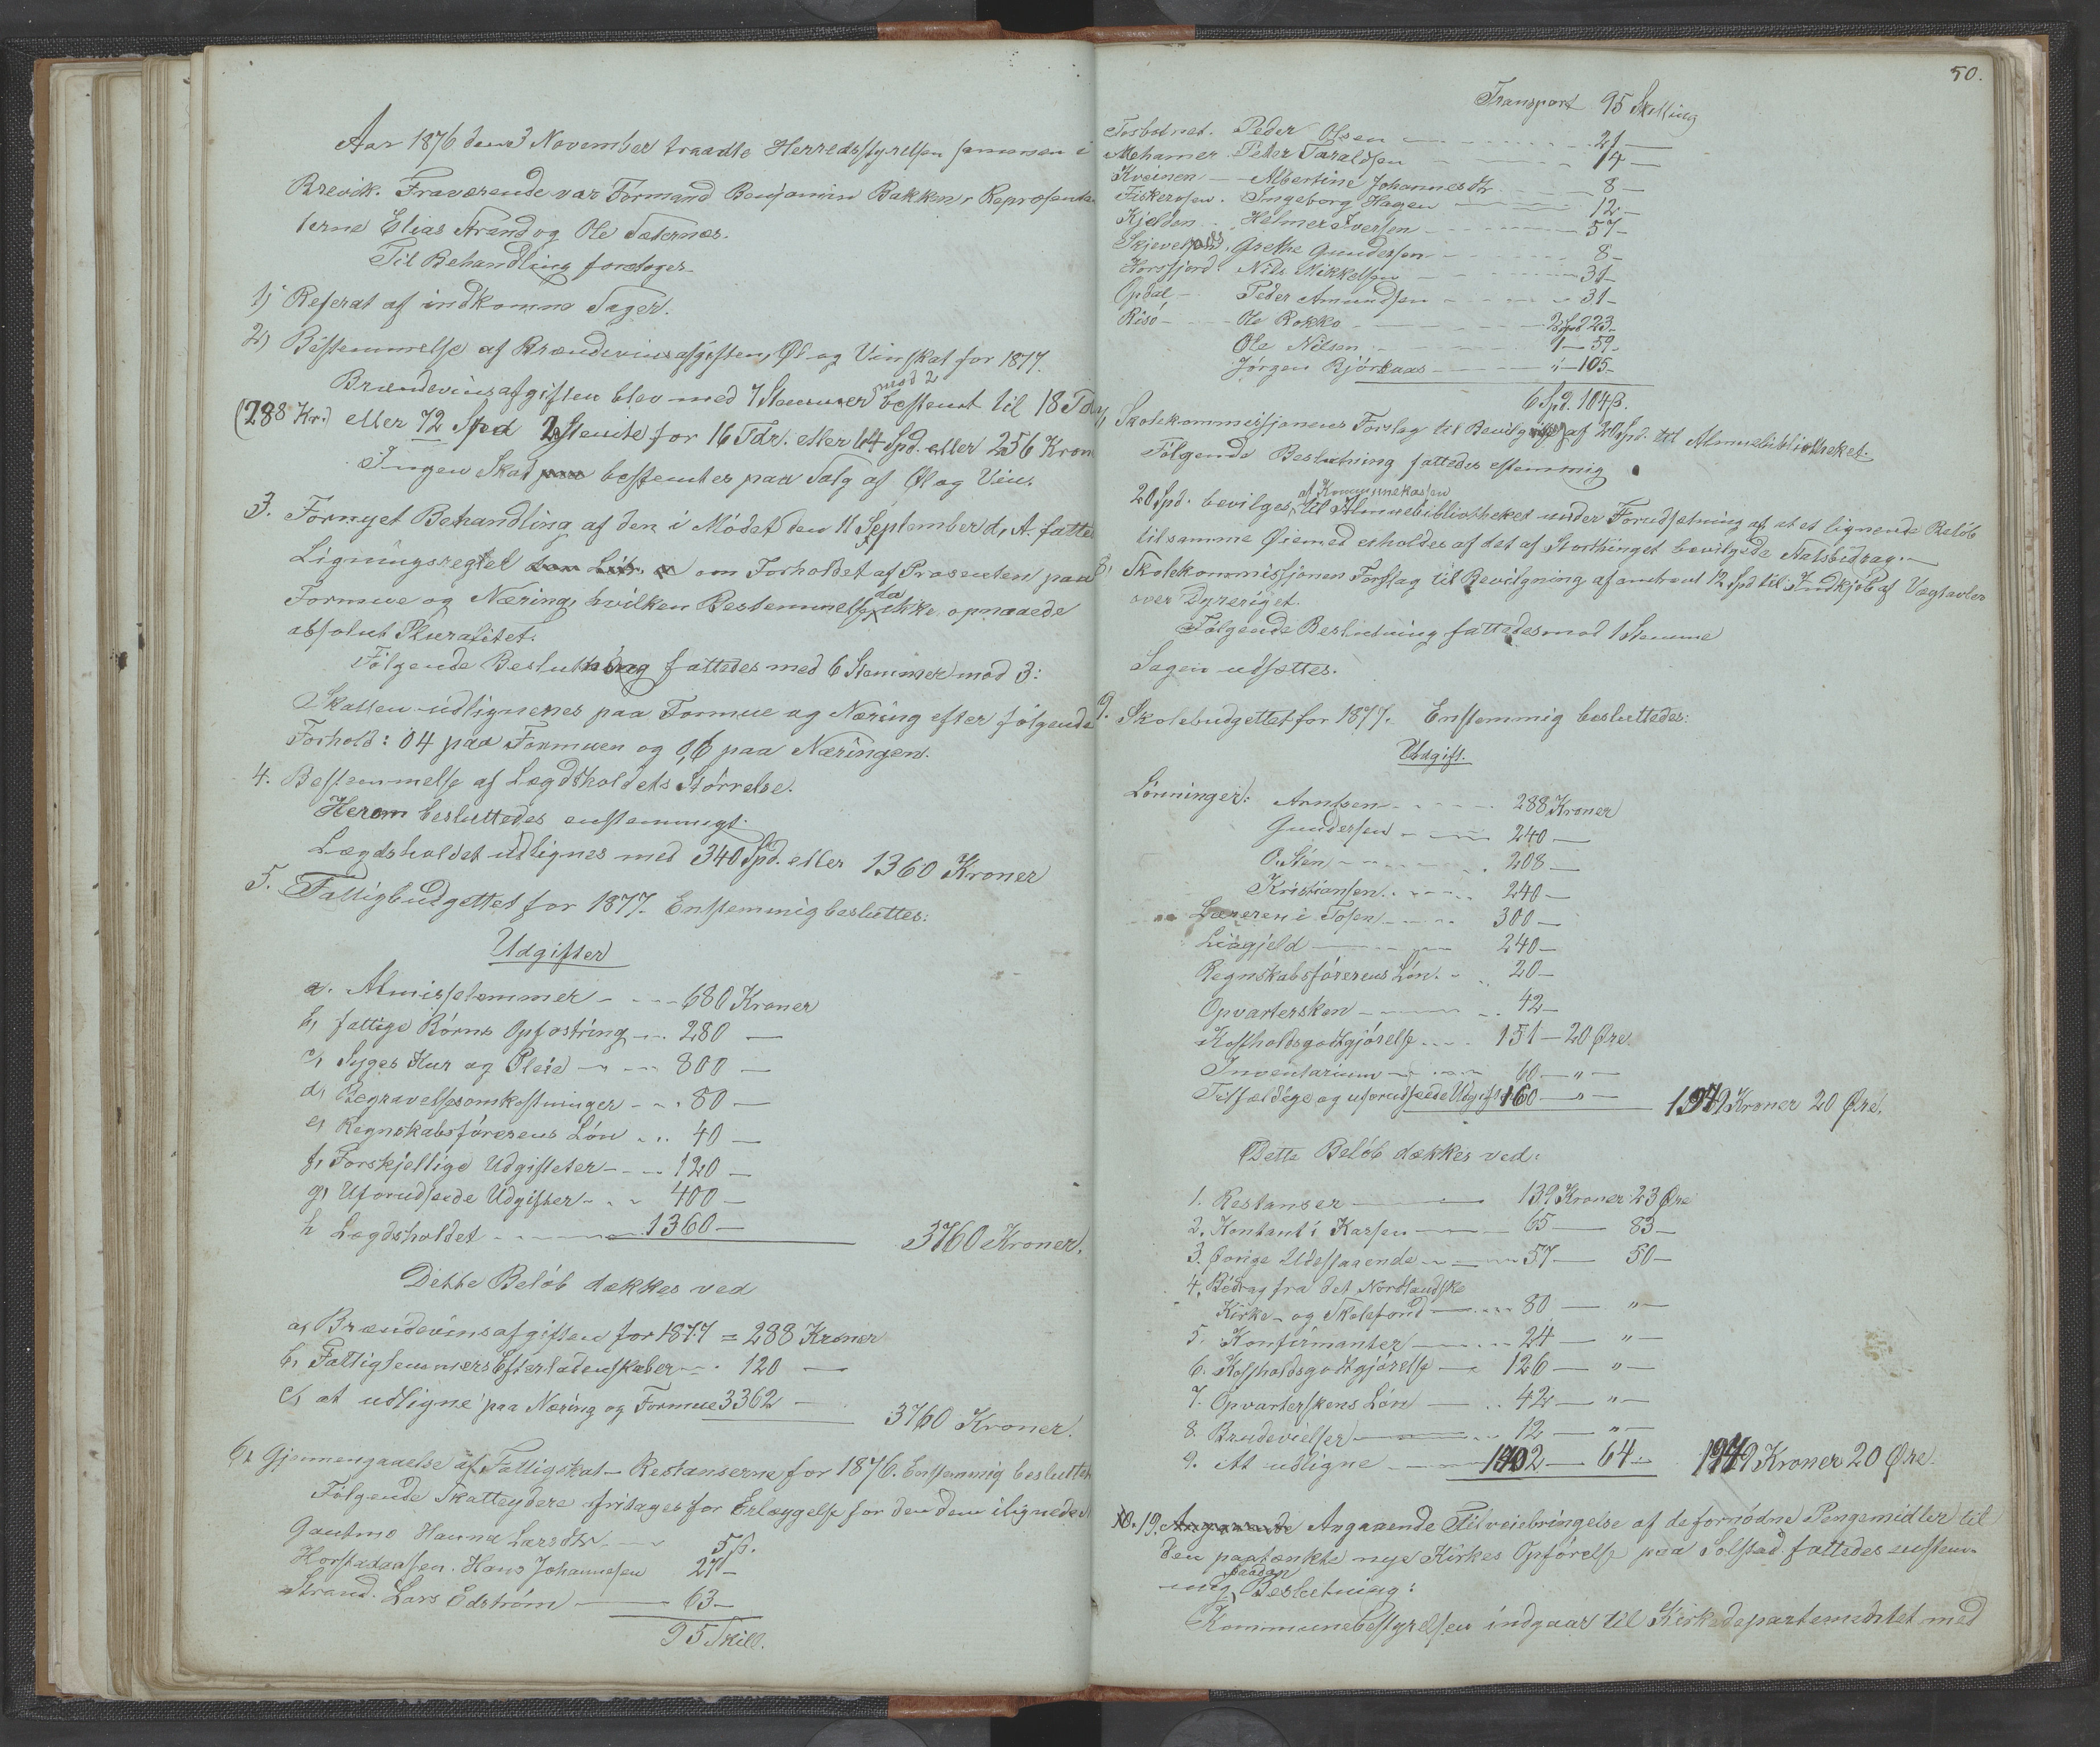 Aar 1876 den 3 November traadte Herredsstyrelsen sammen i
Brevik. Fraværende var Formand Benjamin Bakken, Repræsentan
terne Elias Strand og Ole Sæternæs.
Til Behandling foretoges
1) Referat af indkomne Sager.
2) Bestemmelse af Brændevinsafgiften, Øl og Vinskat for 1877.
Brændevinsafgiften blev med 7 Stemmer mod 2 bestemt til 18 Tdr
(288 Kr.) eller 72 Spd 2 Stemte for 16 Tdr. eller 64 Spd. eller 256 Kron
Ingen Skat bestemtes paa Salg af Øl og Vin.
3. Fornyet Behandling af den i Mødet den 11 September d, A. fatte
Ligningsregel om Forholdet af Prosenten paa
Formue og Næring, hvilken Bestemmelse da ikke opnaaede
absolut Pluralitet.
Følgende Beslutning fattedes med 6 Stemmer mod 3:
Skatten udlignenes paa Formue og Næring efter følgende
Forhold: 04 paa Formuen og 0,6 paa Næringen.
4. Bestemmelse af Lægdsholdets Størrelse.
Herom besluttedes enstemmigt.
Lægdsholdet udlignes med 340 Spd. eller 1360 Kroner
5. Fattigbudgettet for 1877. Enstemmig besluttes:
Udgifter
a. Almisselemmer - - - 680 Kroner
b, fattige Børns Opfostring - - 280 —
c, Syges Kur og Pleie - - - 800 —
d, Begravelsesomkostninger - - - 80 —
e, Regnskabsførerens Løn - - 40 —
f, Forskjellige Udgifteter - - - 120 —
g, Uforudseede Udgifter - - - 400 —
h Lægdsholdet - - - 1360 — 3760 Kroner.
Dette Beløb dækkes ved
a, Brændevinsafgiften for 1877 = 288 Kroner
b, Fattiglemmers Efterladenskaber - - 120 —
c, at udligne paa Næring og Formue 3362 — 3760 Kroner.
6, Gjennemgaaelse af Fattigskat-Restanserne for 1876. Enstemmig beslutte
Følgende Skatteydere fritages for Erlæggelse for den dem ilignede
Gautmo Hanna Larsdtr - - - 5 ß.
Horstadaasen. Hans Johannesen 27 —
Strand. Lars Edstrøm — 63 —
95 Skill.
50.
Transport 95 Skilling
Tosbotnet. Peder Olsen - - - 21 —
Mehamer Peter Taraldsen - - - 14 —
Kveinen — Albertine Johannesdtr - - - 8 —
Fiskerosen. Ingeborg Hagen - - - 12 —
Kjelden Helmer Iversen - - - 57 —
Grethe Gundersen - - - 8 —
Horsfjord Nils Mikkelsen - - - 31 —
Opdal — Peder Amundsen - - - 31 —
Risø — Ole Rokko - - - 2 Spd 23 —
Ole Nilsen - - - 1 — 59 —
Jørgen Bjørkaas - - - 1 — 105 —
6 Spd. 104 ß.
7, Skolekommissjonens Forslag til Bevilgning af 20 Spd. til Almuebibliotheket.
Følgende Beslutning fattedes estemmig
20 Spd. bevilges af Kommunekassen til Almuebibliotheket under Forudsætning af at et lignende Beløb
til samme Øiemed erholdes af det af Storthinget bevilgede Statsbidrag. —
8, Skolekommissjonens Forslag til Bevilgning af omtrent 12 Spd til Indkjøb af Vægtavler
over Dyreriget.
Følgende Beslutning fattedes mod 1 Stemme
Sagen udsættes.
9. Skolebudgettet for 1877. Enstemmig besluttedes:
Udgift.
Lønninger: Arntsen - - - 288 Kroner
Gundersen - - - 240 —
O. Stén - - - 208 —
Kristiansen - - - 240 —
Læreren i Tosen - - - 300 —
Leiegjeld - - - 240 —
Regnskabsførerens Løn. - - 20 —
Opvartersken - - - 42 —
Kostholdsgodtgjørelse - - - 151 — 20 Øre.
Inventarium - - - 60 — " —
Tilfældige og uforudseede Udgifter 160 — " — 1949 Kroner 20 Øre.
Dette Beløb dækkes ved:
1. Restanser — 139 Kroner 23 Øre
2. Kontant i Kassen — 65 — 83 —
3. Øvrige Udestaaende - - - 57 — 50 —
4. Bidrag fra det Nordlandske
Kirke- og Skolefond - - - 80 — " —
5. Konfirmanter - - - 24 — " —
6. Kostholdsgodtgjørelse - - 126 — " —
7. Opvarterskens Løn - - - 42 — " —
8. Brudevielser - - - 12 — " —
9. At udligne - - - 1402 — 64 — 1949 Kroner 20 Øre.
10. 19. Angaaende Angaaende Tilveiebringelse af de fornødne Pengemidler til
den paatænkte nye Kirkes Opførelse paa Solstad fattedes enstem-
mig saadan Beslutning:
Kommunebestyrelsen indgaar til Kirkedepartementet med